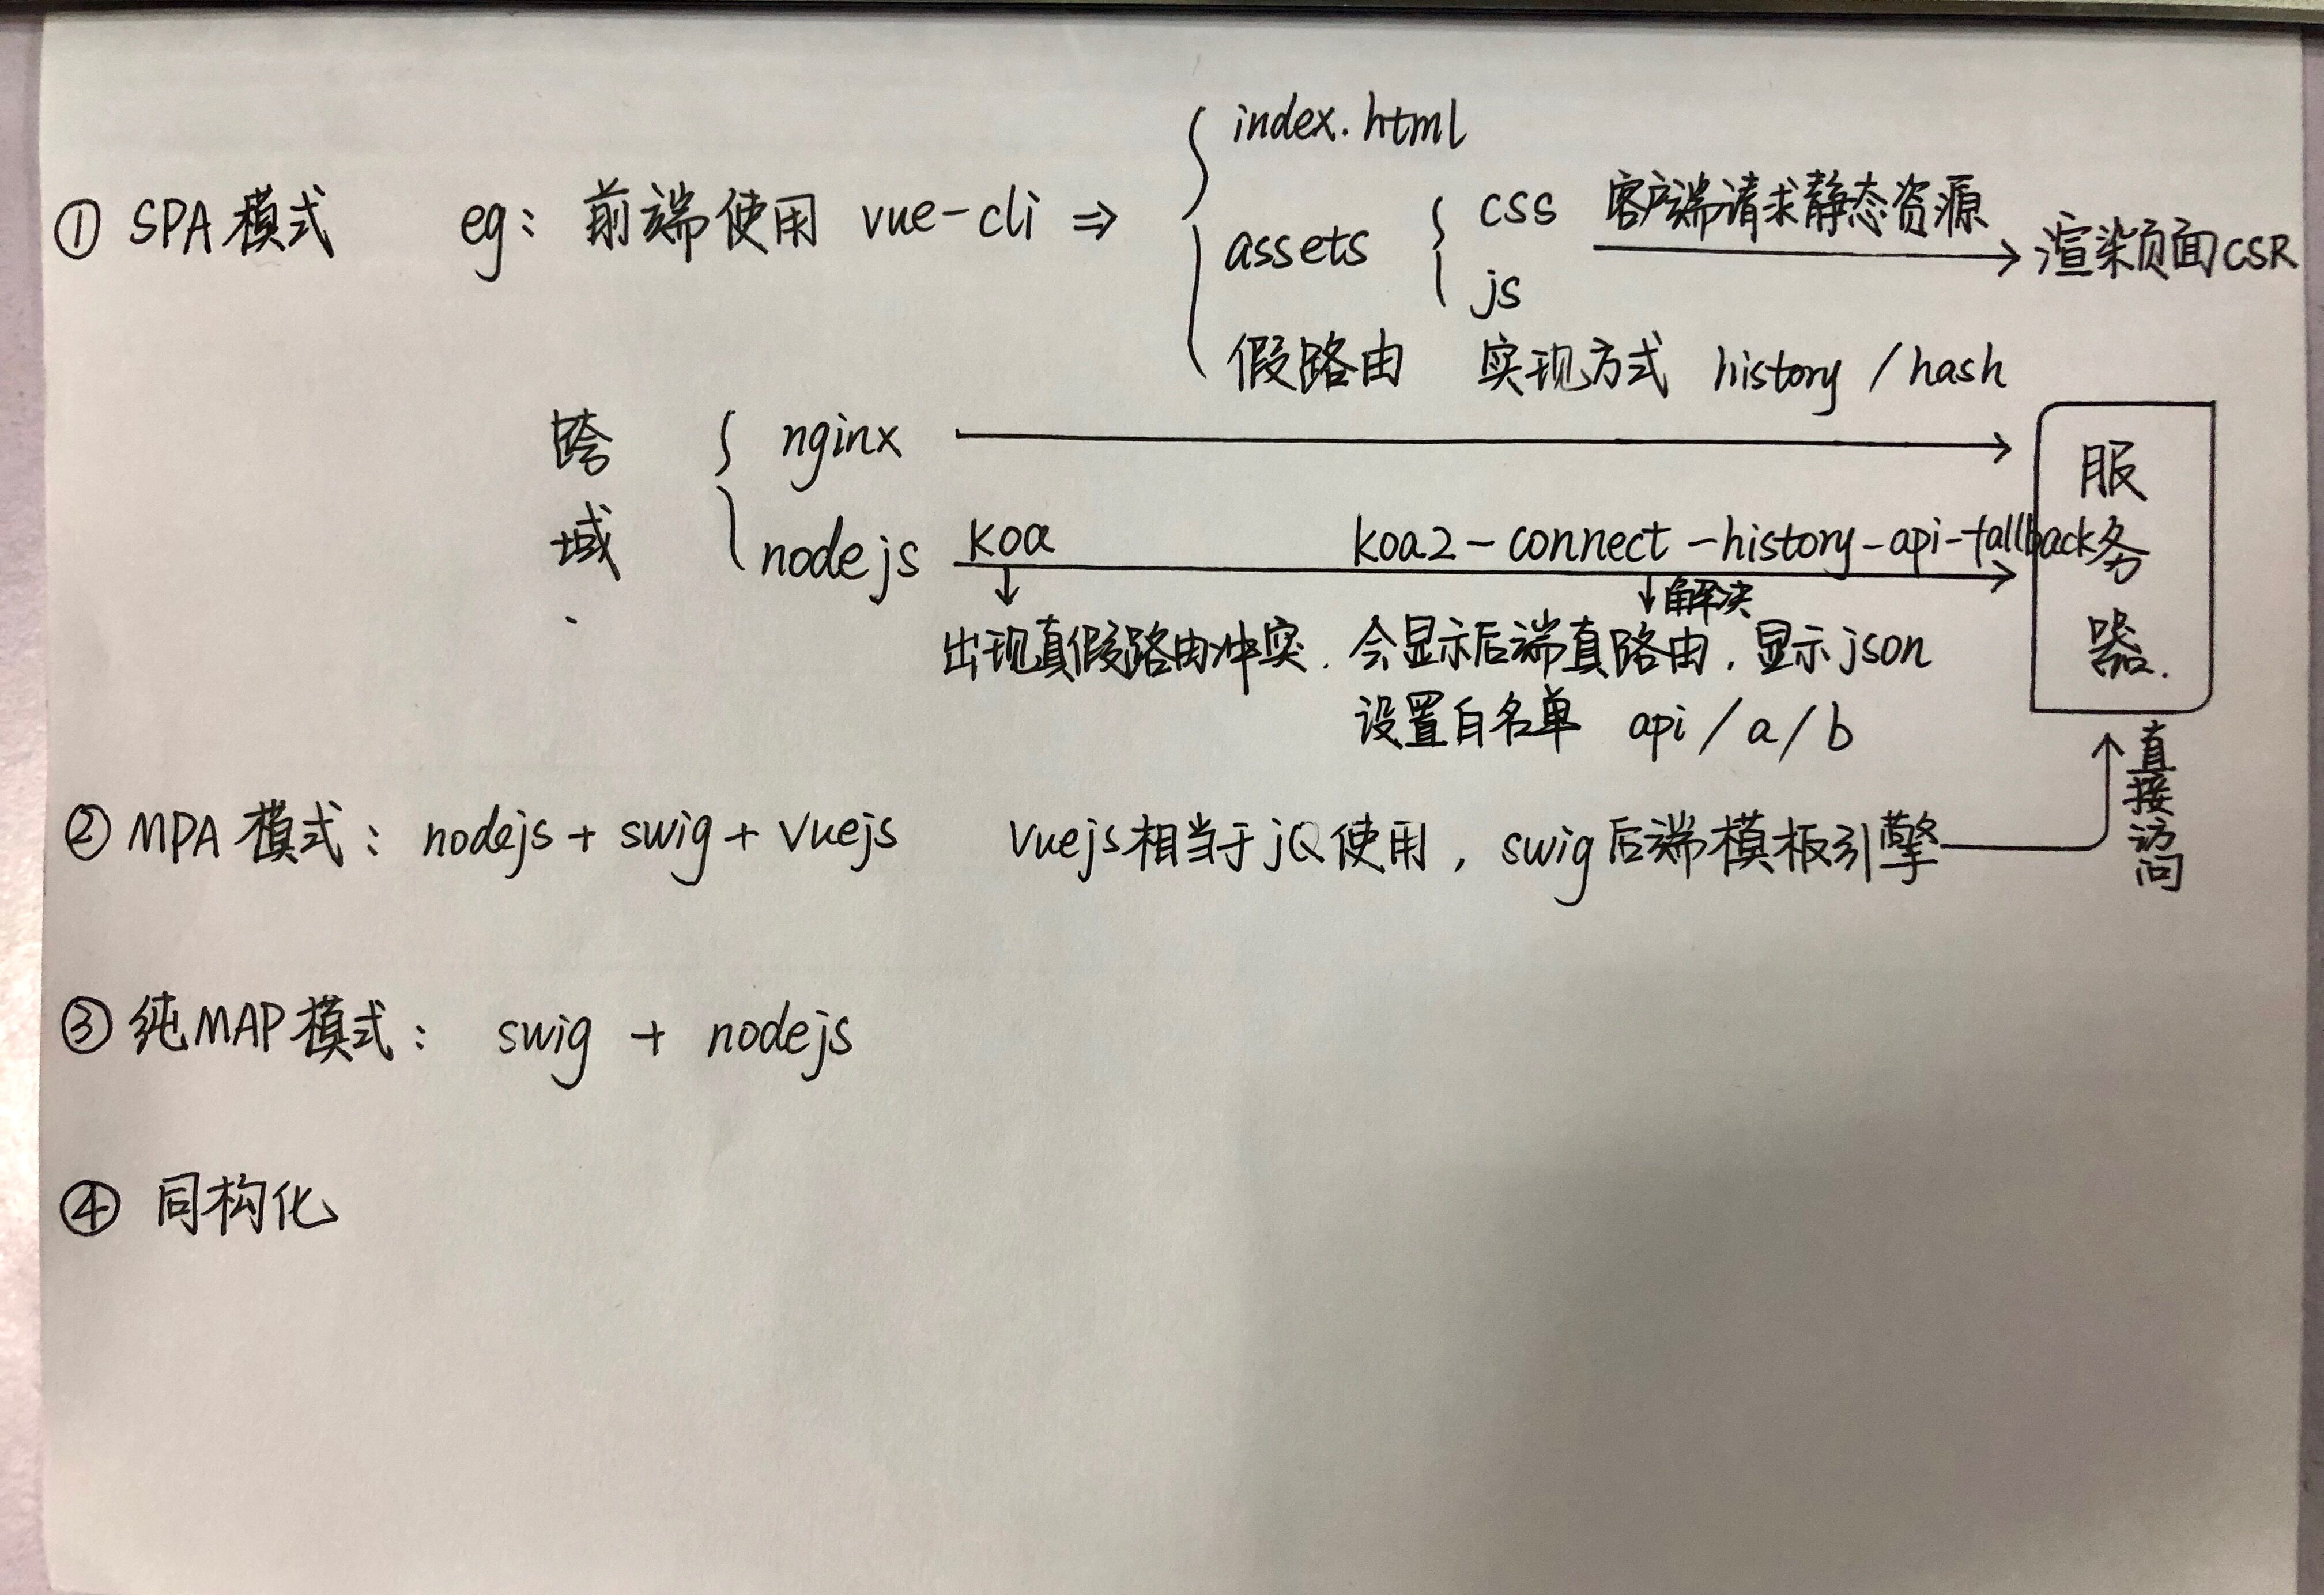 index.html
① SPA模式 eg: 前端使用 vue-cli ⇒
assets { css
js
客户端请求静态资源
渲染页面CSR
假路由 实现方式 history / hash
跨域.
nginx
nodejs koa koa2-connect-history-api-fallback
服务器.
解决
出现真假路由冲突. 会显示后端真路由, 显示json
设置白名单 api / a / b
直接访问
② MPA模式: nodejs + swig + vuejs vuejs相当于jQ使用, swig后端模板引擎
③ 纯MAP模式: swig + nodejs
④ 同构化